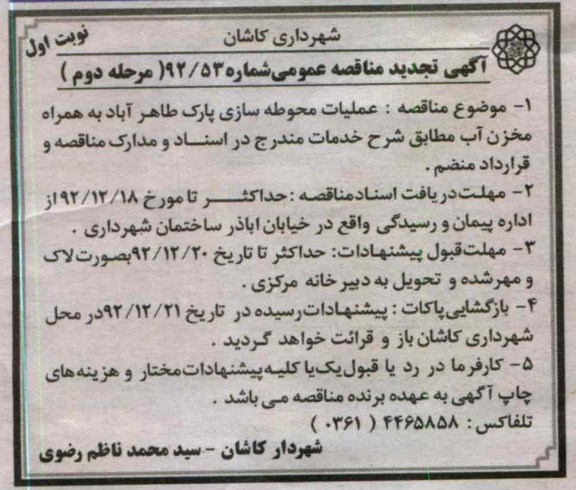 شهرداری کاشان
نوبت اول
آگهی تجدید مناقصه عمومی شماره ۹۲/۵۳( مرحله دوم )
۱- موضوع مناقصه : عملیات محوطه سازی پارک طاهر آباد به همراه
مخزن آب مطابق شرح خدمات مندرج در اسناد و مدارک مناقصه و
قرارداد منضم .
۲- مهلت دریافت اسناد مناقصه : حداکثر تا مورخ ۹۲/۱۲/۱۸ از
اداره پیمان و رسیدگی واقع در خیابان اباذر ساختمان شهرداری .
۳- مهلت قبول پیشنهادات: حداکثر تا تاریخ ۹۲/۱۲/۲۰ بصورت لاک
و مهر شده و تحویل به دبیر خانه مرکزی .
۴- بازگشایی پاکات : پیشنهادات رسیده در تاریخ ۹۲/۱۲/۲۱ در محل
شهرداری کاشان باز و قرائت خواهد گردید .
۵- کارفرما در رد یا قبول یک یا کلیه پیشنهادات مختار و هزینه های
چاپ آگهی به عهده برنده مناقصه می باشد .
تلفاکس : ۴۴۶۵۸۵۸ ( ۰۳۶۱ )
شهردار کاشان - سید محمد ناظم رضوی